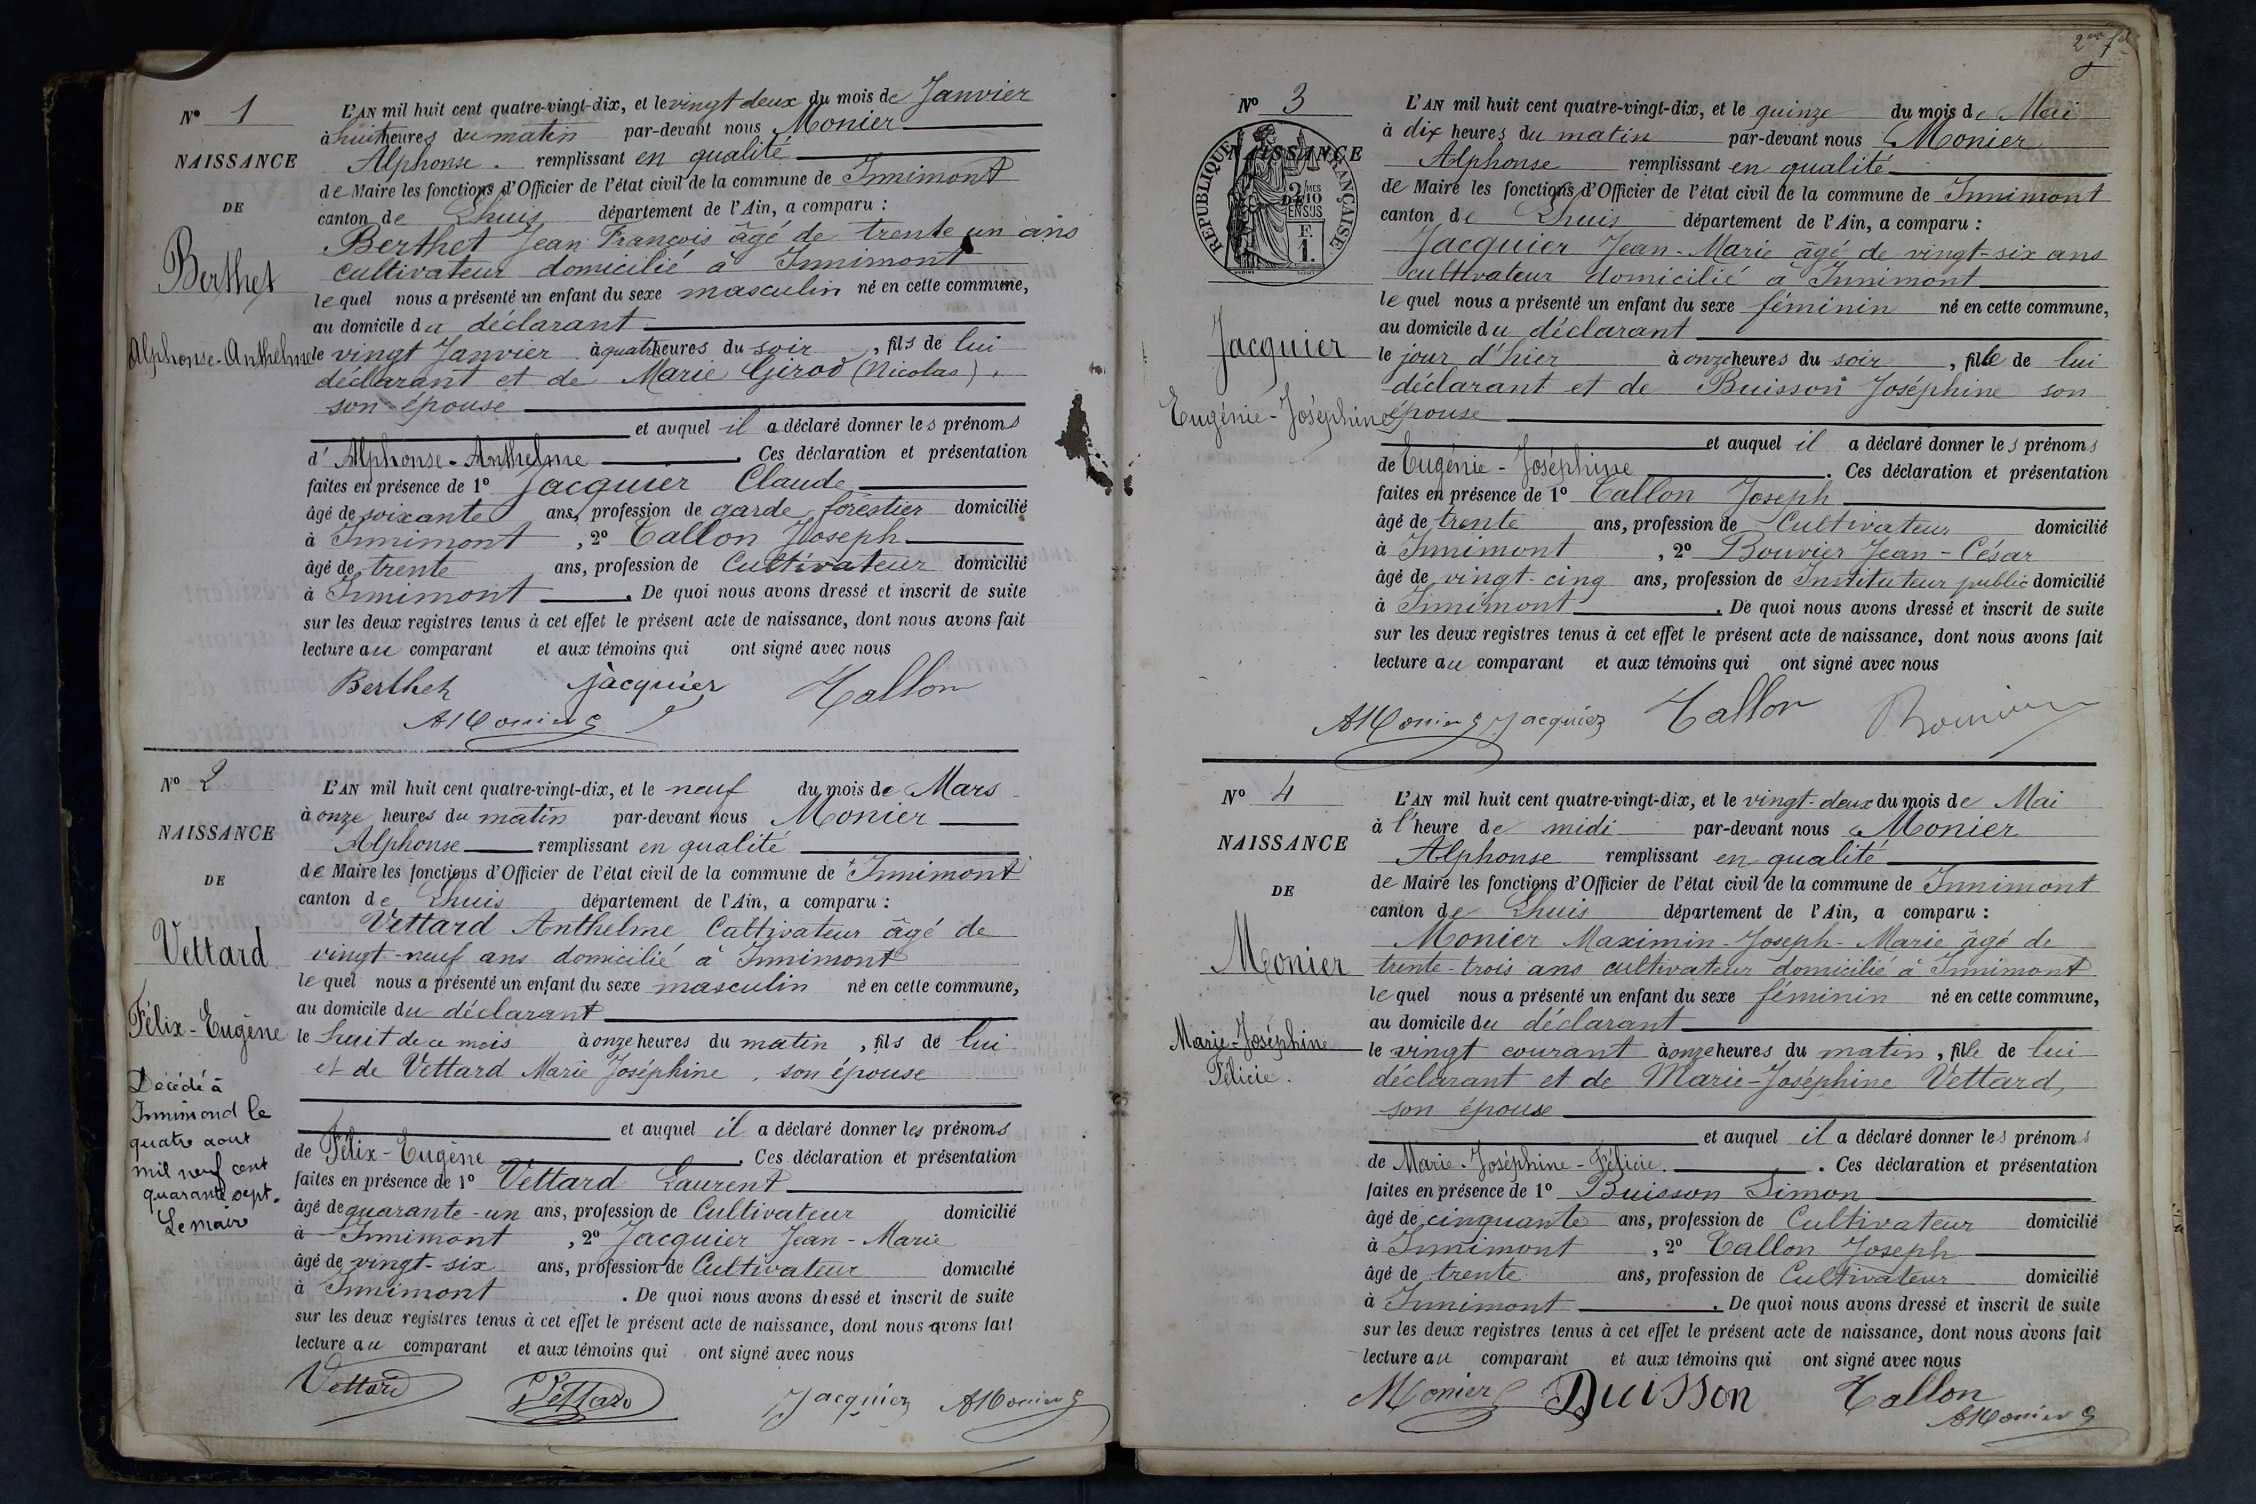 Nº 1
NAISSANCE
DE
Berthet
Alphonse-Anthelme
L'AN mil huit cent quatre-vingt-dix, et le vingt deux du mois de Janvier
à huit heures du matin par-devant nous Monier
Alphonse. remplissant en qualité
de Maire les fonctions d'Officier de l'état civil de la commune de Innimont
canton de Lhuis département de l'Ain, a comparu :
Berthet Jean François âgé de trente un ans
cultivateur domicilié à Innimont
lequel nous a présenté un enfant du sexe masculin né en cette commune,
au domicile du déclarant
le vingt Janvier à quatre heures du soir, fils de lui
déclarant et de Marie Girod (Nicolas),
son épouse
et auquel il a déclaré donner les prénoms
d'Alphonse-Anthelme. Ces déclaration et présentation
faites en présence de 1º Jacquier Claude
âgé de soixante ans, profession de garde forestier domicilié
à Innimont, 2º Tallon Joseph
âgé de trente ans, profession de Cultivateur domicilié
à Innimont. De quoi nous avons dressé et inscrit de suite
sur les deux registres tenus à cet effet le présent acte de naissance, dont nous avons fait
lecture au comparant et aux témoins qui ont signé avec nous
Berthet Jacquier Tallon
AMonier
Nº 2
NAISSANCE
DE
Vettard
Félix-Eugène
Décédé à
Innimond le
quatre aout
mil neuf cent
quarante sept.
Le maire
L'AN mil huit cent quatre-vingt-dix, et le neuf du mois de Mars
à onze heures du matin par-devant nous Monier
Alphonse remplissant en qualité
de Maire les fonctions d'Officier de l'état civil de la commune de Innimont
canton de Lhuis département de l'Ain, a comparu :
Vettard Anthelme Cultivateur âgé de
vingt-neuf ans domicilié à Innimont
lequel nous a présenté un enfant du sexe masculin né en cette commune,
au domicile du déclarant
le huit de ce mois à onze heures du matin, fils de lui
et de Vettard Marie Joséphine, son épouse
et auquel il a déclaré donner les prénoms
de Félix-Eugène. Ces déclaration et présentation
faites en présence de 1º Vettard Laurent
âgé de quarante-un ans, profession de Cultivateur domicilié
à Innimont, 2º Jacquier Jean-Marie
âgé de vingt-six ans, profession de Cultivateur domicilié
à Innimont. De quoi nous avons dressé et inscrit de suite
sur les deux registres tenus à cet effet le présent acte de naissance, dont nous avons fait
lecture au comparant et aux témoins qui ont signé avec nous
Vettard Vettard Jacquier AMonier
Nº 3
NAISSANCE
RÉPUBLIQUE FRANÇAISE
2/10MES
EN SUS
F.
1.
Jacquier
Eugénie-Joséphine
L'AN mil huit cent quatre-vingt-dix, et le quinze du mois de Mai
à dix heures du matin par-devant nous Monier
Alphonse remplissant en qualité
de Maire les fonctions d'Officier de l'état civil de la commune de Innimont
canton de Lhuis département de l'Ain, a comparu :
Jacquier Jean-Marie âgé de vingt-six ans
cultivateur domicilié à Innimont
lequel nous a présenté un enfant du sexe féminin né en cette commune,
au domicile du déclarant
le jour d'hier à onze heures du soir, fille de lui
déclarant et de Buisson Joséphine son
épouse
et auquel il a déclaré donner les prénoms
de Eugénie-Joséphine. Ces déclaration et présentation
faites en présence de 1º Tallon Joseph
âgé de trente ans, profession de Cultivateur domicilié
à Innimont, 2º Bouvier Jean-César
âgé de vingt-cinq ans, profession de Instituteur public domicilié
à Innimont. De quoi nous avons dressé et inscrit de suite
sur les deux registres tenus à cet effet le présent acte de naissance, dont nous avons fait
lecture au comparant et aux témoins qui ont signé avec nous
AMonier Jacquier Tallon Bouvier
Nº 4
NAISSANCE
DE
Monier
Marie-Joséphine
Félicie.
L'AN mil huit cent quatre-vingt-dix, et le vingt-deux du mois de Mai
à l'heure de midi par-devant nous Monier
Alphonse remplissant en qualité
de Maire les fonctions d'Officier de l'état civil de la commune de Innimont
canton de Lhuis département de l'Ain, a comparu :
Monier Maximin-Joseph-Marie âgé de
trente-trois ans cultivateur domicilié à Innimont
lequel nous a présenté un enfant du sexe féminin né en cette commune,
au domicile du déclarant
le vingt courant à onze heures du matin, fille de lui
déclarant et de Marie-Joséphine Vettard,
son épouse
et auquel il a déclaré donner les prénoms
de Marie-Joséphine-Félicie. Ces déclaration et présentation
faites en présence de 1º Buisson Simon
âgé de cinquante ans, profession de Cultivateur domicilié
à Innimont, 2º Tallon Joseph
âgé de trente ans, profession de Cultivateur domicilié
à Innimont. De quoi nous avons dressé et inscrit de suite
sur les deux registres tenus à cet effet le présent acte de naissance, dont nous avons fait
lecture au comparant et aux témoins qui ont signé avec nous
Monier Buisson Tallon
AMonier